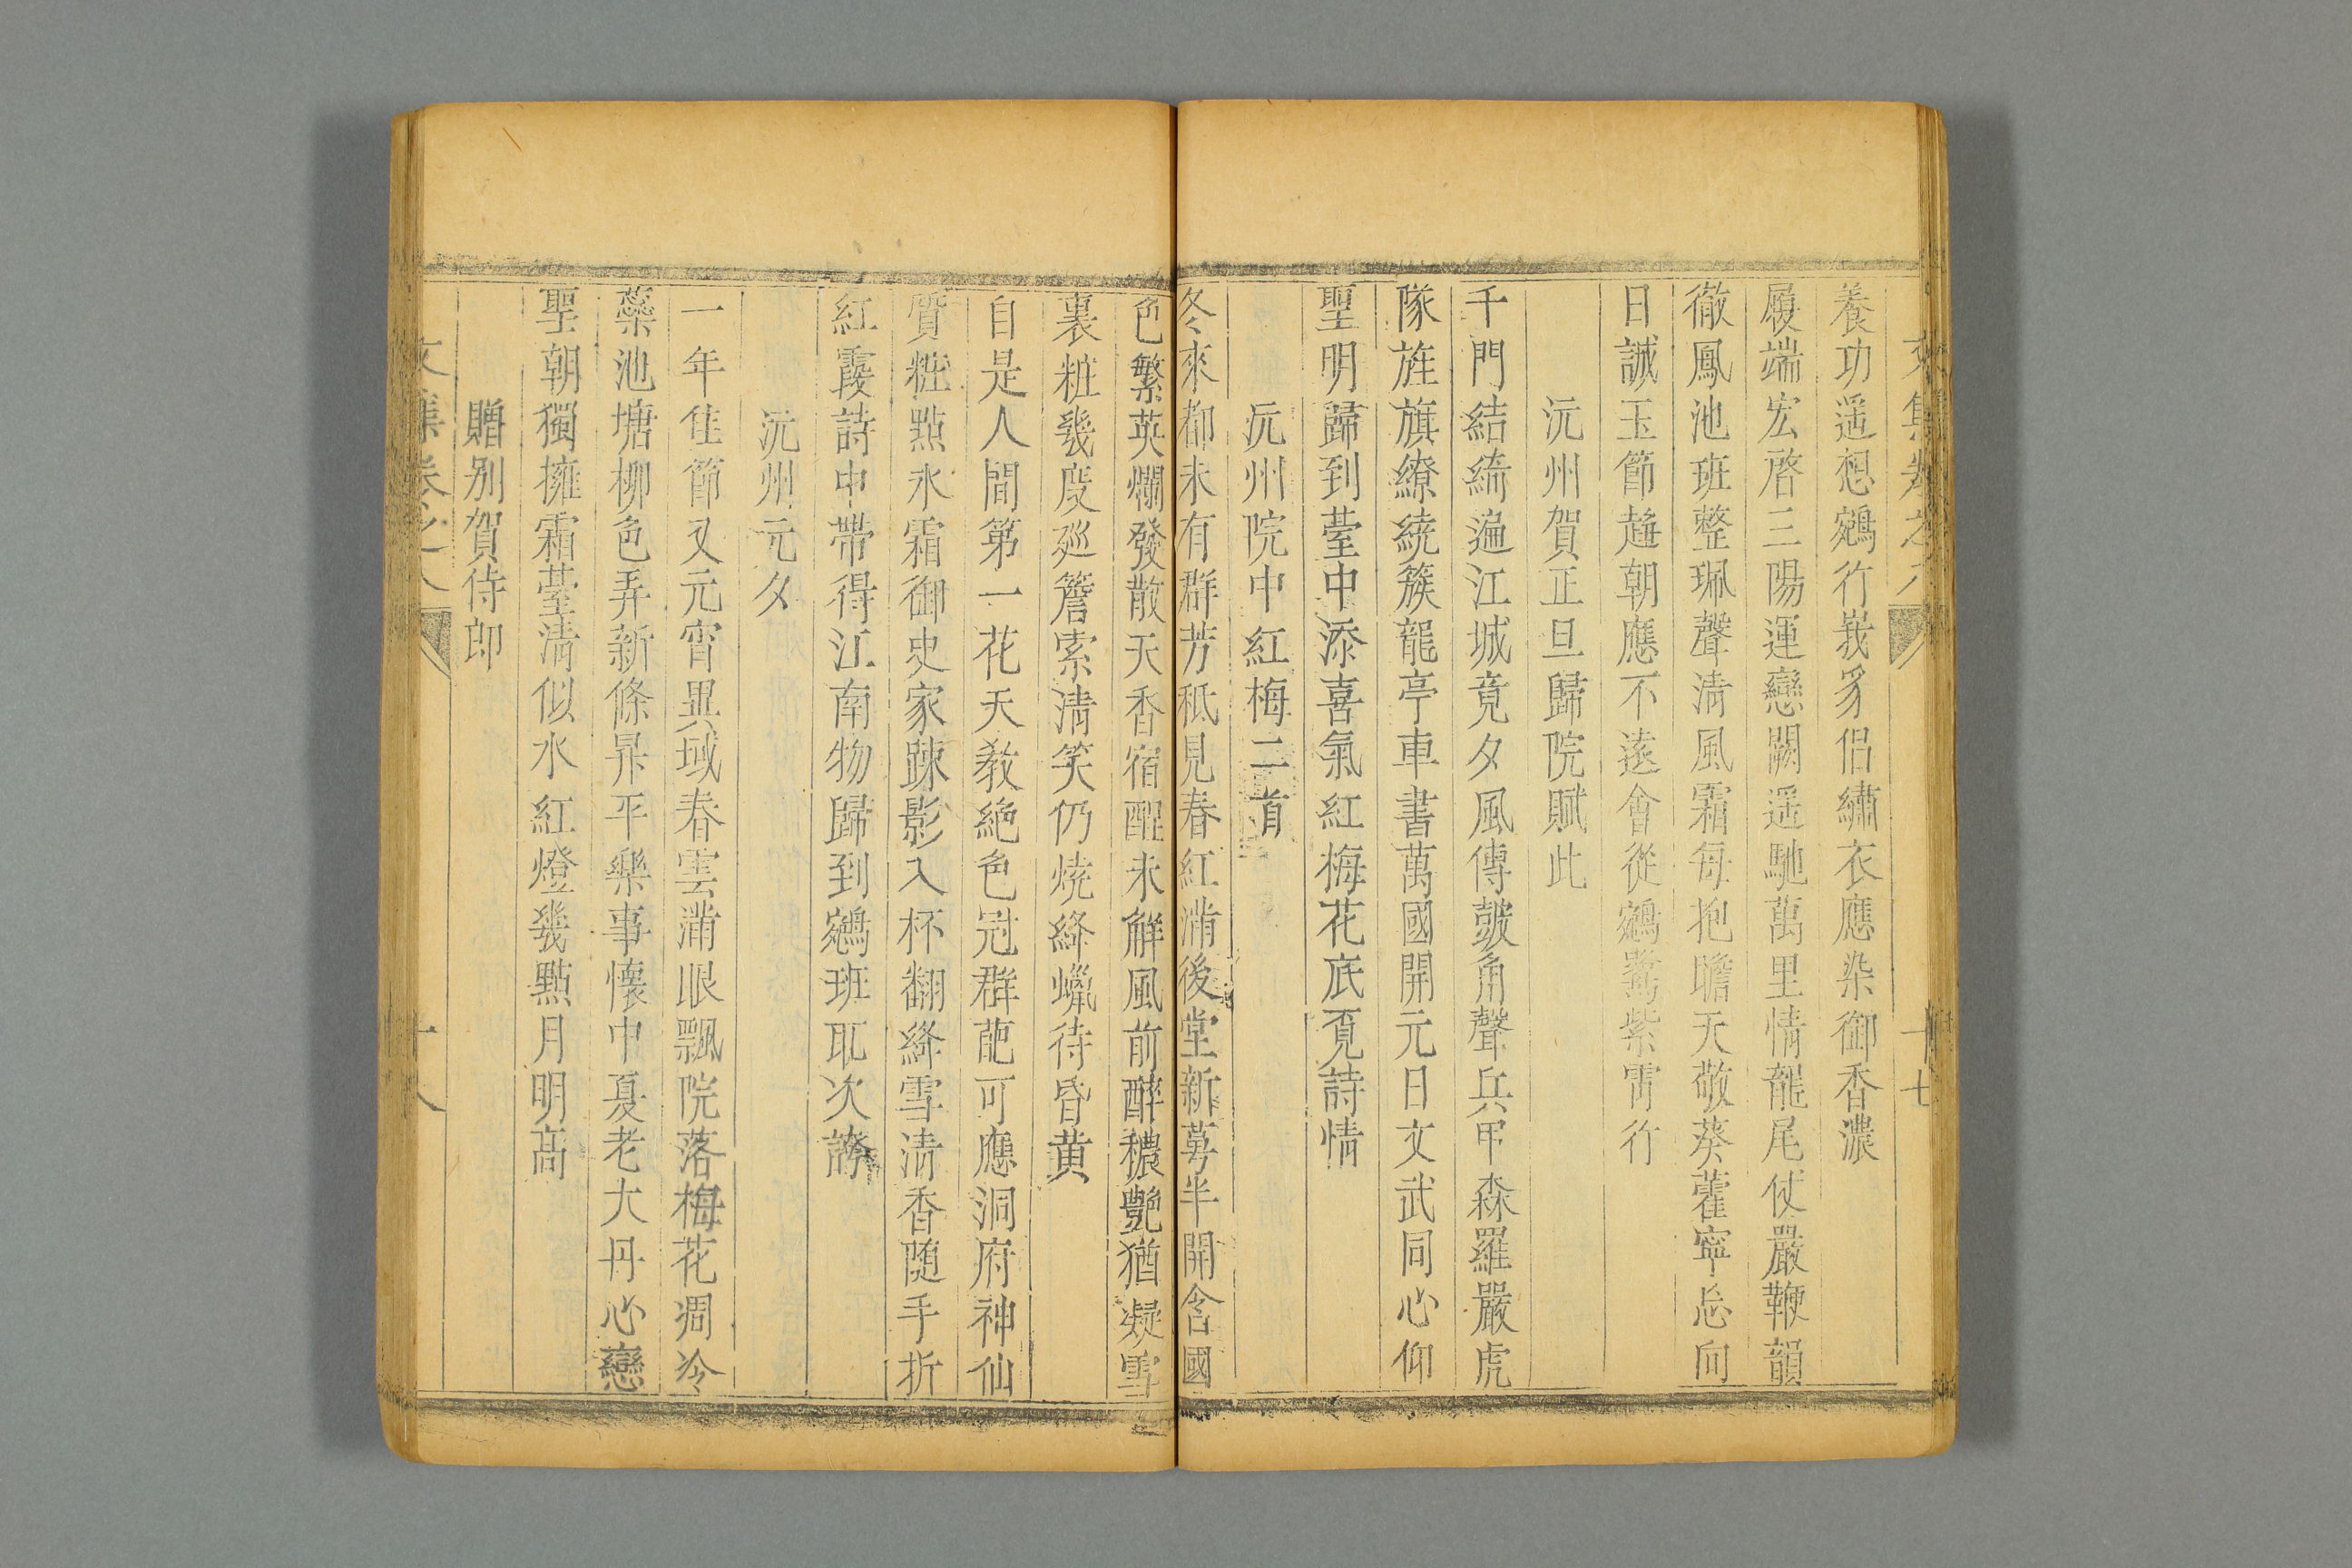 文集卷之八 十七
養功遥想鵷行峩豸侣繡衣應染御香濃
履端宏啓三陽運戀闕遥馳萬里情龍尾仗嚴鞭韻
徹鳳池班整珮聲清風霜每抱瞻天敬葵藿寧忘向
日誠玉節趍朝應不遠會從鵷鷺紫霄行
沅州賀正旦歸院賦此
千門結綺遍江城竟夕風傳皷角聲兵甲森羅嚴虎
隊旌旗繚繞簇龍亭車書萬國開元日文武同心仰
聖明歸到䑓中添喜氣紅梅花底覔詩情
沅州院中紅梅二首
冬來都未有群芳秪見春紅滿後堂新萼半開含國
色繁英爛發散天香宿酲未解風前醉穠艷猶凝雪
裏粧幾度廵簷索清笑仍燒絳蠟待昏黄
自是人間第一花天教絶色冠群葩可應洞府神仙
質粧點氷霜御史家踈影入杯翻絳雪清香随手折
紅霞詩中帶得江南物歸到鵷班取次誇
沅州元夕
一年佳節又元宵異域春雲滿眼飄院落梅花凋冷
蘂池塘柳色弄新條昇平樂事懷中夏老大丹心戀
聖朝獨擁霜䑓清似水紅燈幾點月明髙
贈别賀侍郎
文集卷之八 十八